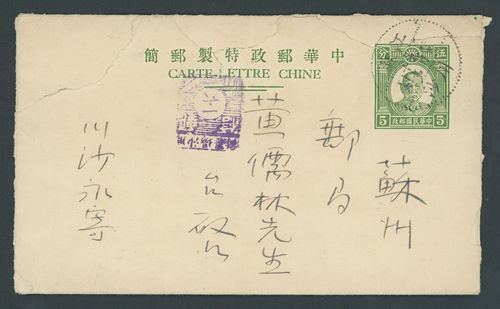 中華郵政特製郵簡
CARTE-LETTRE CHINE
伍分
5 中華民國郵政 5
蘇州
郵局
黃儒林先生
台啟
川沙永寄